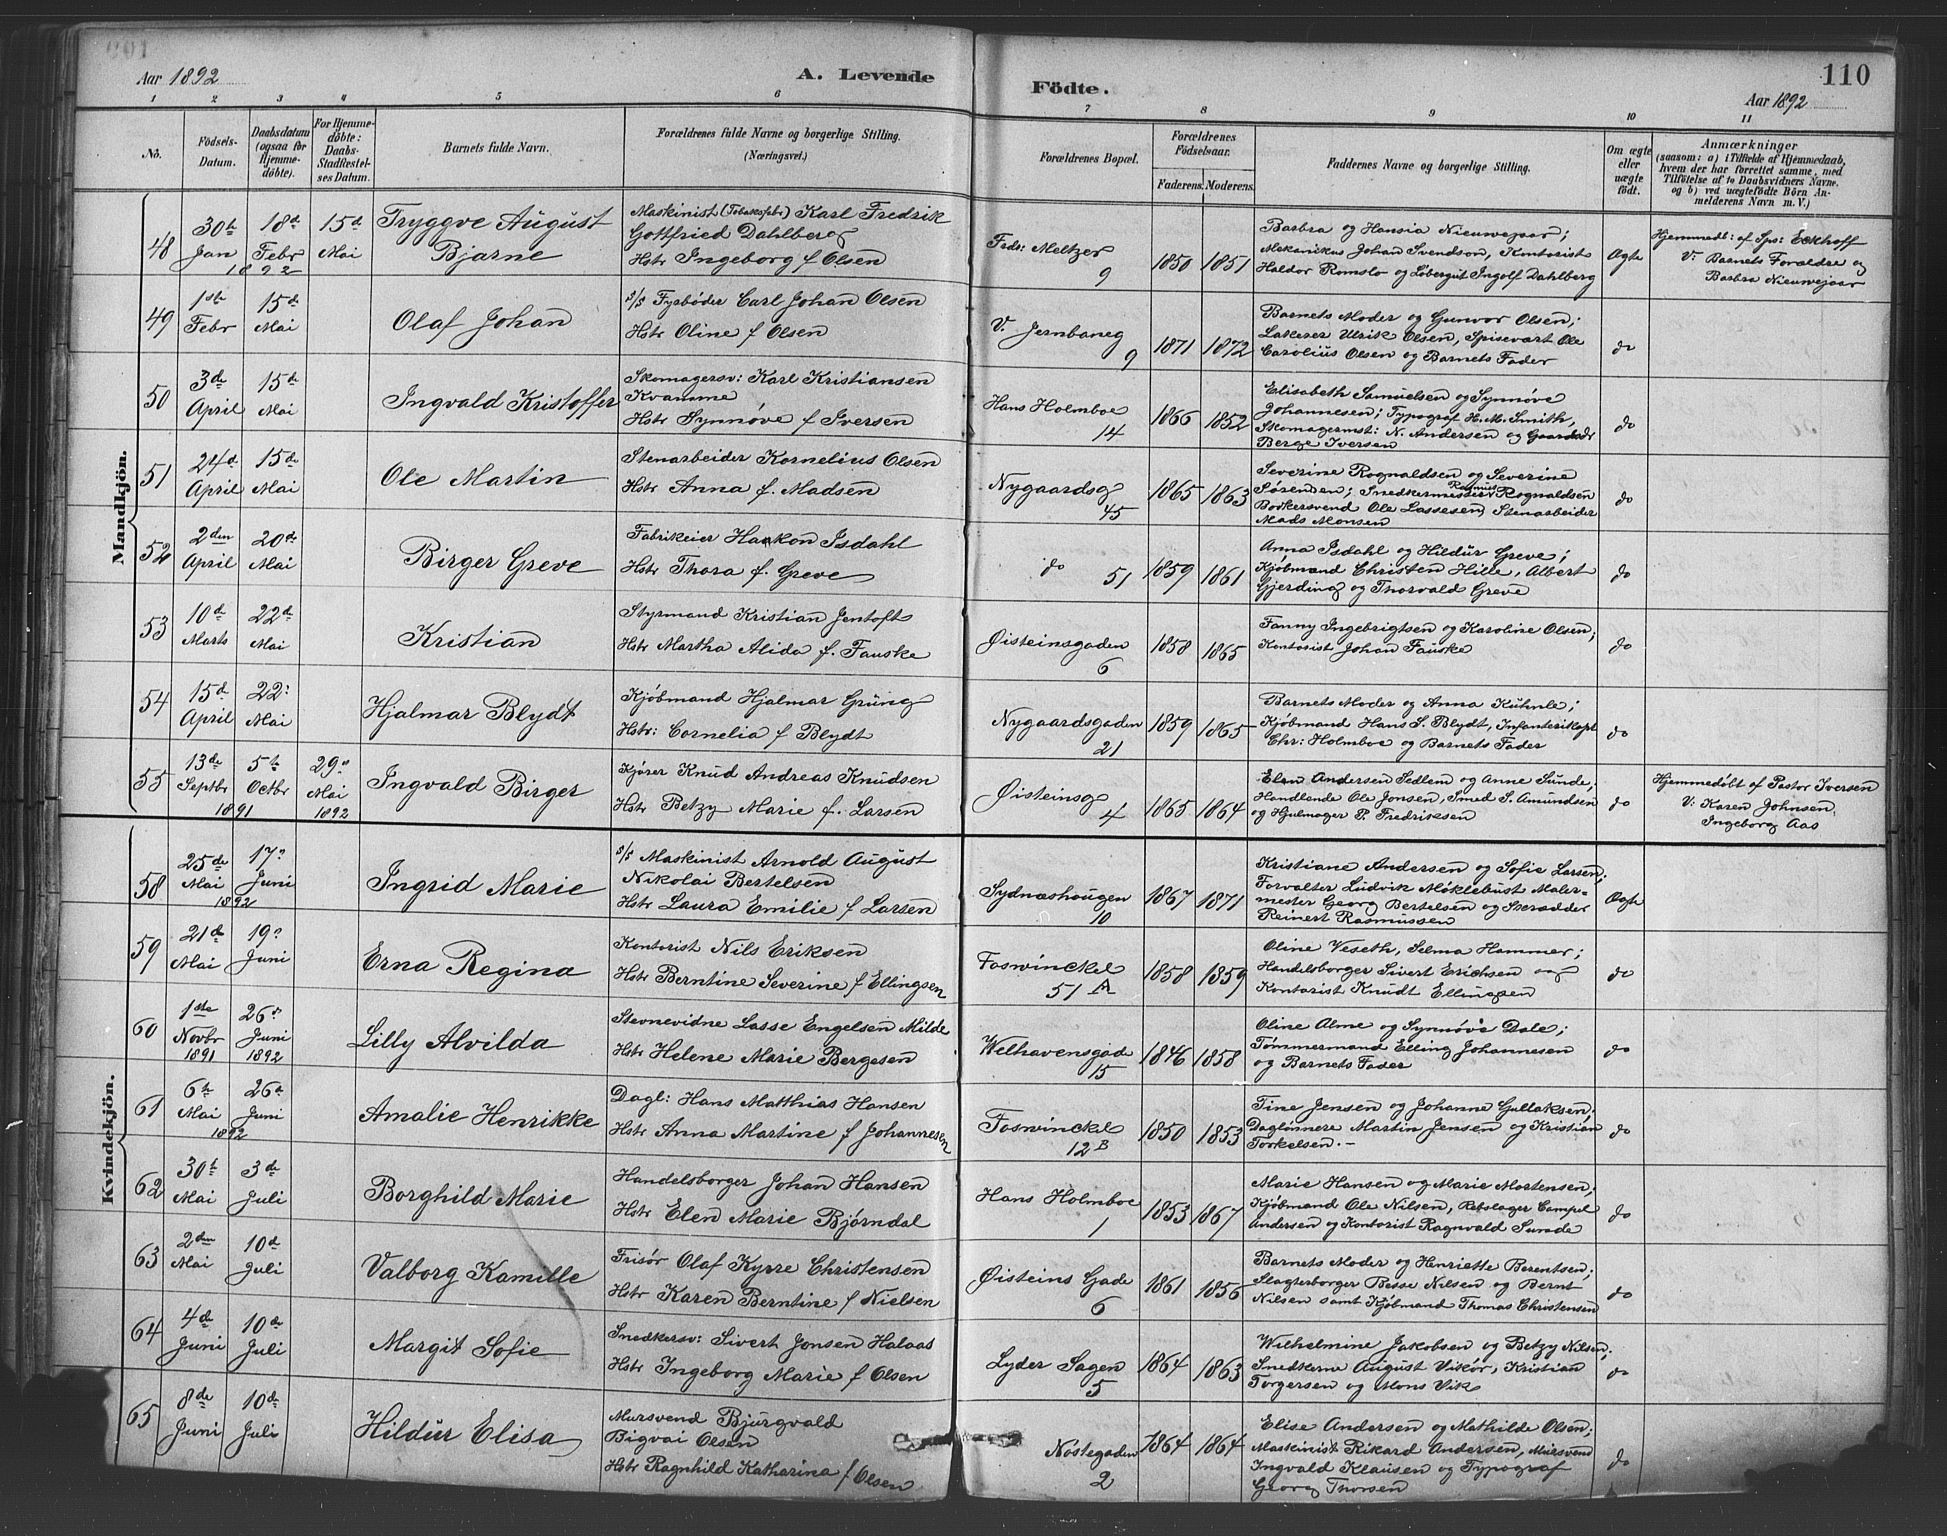 Aar 1892
A. Levende
Födte.
110
Aar 1892
1 2 3 4 5 6 7 8 9 10 11
No.
Födsels-Datum.
Daabsdatum (ogsaa for Hjemmedöbte).
For Hjemmedöbte: Daabs-Stadfestelses Datum.
Barnets fulde Navn.
Forældrenes fulde Navne og borgerlige Stilling.
(Næringsvei.)
Forældrenes Bopæl.
Forældrenes Födselsaar.
Faderens. Moderens.
Faddernes Navne og borgerlige Stilling.
Om ægte eller uægte födt.
Anmærkninger
(saasom: a) i Tilfælde af Hjemmedaab, hvem der har forrettet samme, med Tilföielse af to Daabsvidners Navne, og b) ved uægtefödte Börn Anmelderens Navn m. V.)
Mandkjön.
48 30te Jan 18de Febr 1892 15de Mai
Tryggve August
Bjarne
Maskinist (Tobaksfabr) Karl Fredrik
Gottfried Dahlberg
Hstr Ingeborg f Olsen
Fads: Meltzer
9
1850 1851
Barbra og Hansia Nieuwejaar;
Mekanikus Johan Svendson, Kontorist
Haldor Romslo og Løbergut Ingolf Dahlberg
Ægte
Hjemmedbt: af Sps: Eckhoff
V: Barnets Forældre og
Barbra Nieuwejaar
49 1ste Febr 15de Mai
Olaf Johan
s/s Fyrbøder Carl Johan Olsen
Hstr Oline f Olsen
V. Jernbaneg
9
1871 1872
Barnets Moder og Gunvor Olsen;
Laterer Ulrik Olsen, Spisevært Ole
Carolius Olsen og Barnets Fader
do
50 3de April 15de Mai
Ingvald Kristoffer
Skomagersv: Karl Kristiansen
Kvamme
Hstr Synnøve f Iversen
Hans Holmboe
14
1866 1852
Elisabeth Samuelsen og Synnøve
Johannesen; Typograf H. M. Smith,
Skomagermst: N. Andersen og Gaardsdr
Berge Iversen
do
51 24de April 15de Mai
Ole Martin
Stenarbeider Kornelius Olsen
Hstr Anna f. Madsen
Nygaardsg
45
1865 1863
Severine Rognaldsen og Severine
Sørensen; Snedkermester Rasmus Rognaldsen
Bødkersvend Ole Lassesen, Stenarbeider
Mads Monsen
do
52 2den April 20de Mai
Birger Greve
Fabrikeier Haakon Isdahl
Hstr Thora f. Greve
do 51
1859 1861
Anna Isdahl og Hildur Greve;
Kjøbmand Christen Hille, Albert
Gjerding og Thorvald Greve
do
53 10de Marts 22de Mai
Kristian
Styrmand Kristian Jentoft
Hstr Martha Alida f. Fauske
Øisteinsgaden
6
1858 1865
Fanny Ingebrigtsen og Karoline Olsen;
Kontorist Johan Fauske
do
54 15de April 22: Mai
Hjalmar Blydt
Kjøbmand Hjalmar Grung
Hstr: Cornelia f Blydt
Nygaardsgaden
21
1859 1865
Barnets Moder og Anna Kuhnle;
Kjøbmand Hans S. Blydt, Infanterikapt
Chr: Holmboe og Barnets Fader
do
55 13de Septbr 5te Octbr 1891 29de Mai 1892
Ingvald Birger
Kjører Knud Andreas Knudsen
Hstr Betzy Marie f. Larsen
Øisteinsg
4
1865 1864
Elen Andersen Sedlem og Anne Sunde;
Handlende Ole Jonsen, Smed S. Amundsen
og Hjulmager P. Fredriksen
do
Hjemmedøbt af Pastor Iversen
V: Karen Johnsen
Ingeborg Aas
Kvindekjön.
58 25de Mai 17de Juni 1892
Ingrid Marie
s/s Maskinist Arnold August
Nikolai Bertelsen
Hstr Laura Emilie f Larsen
Sydnæshaugen
10
1867 1871
Kristiane Andersen og Sofie Larsen;
Forvalter Ludvik Møklebust Maler-
mester Georg Bertelsen og Skrædder
Reinert Rasmussen
Ægte
59 21de Mai 19de Juni
Erna Regina
Kontorist Nils Eriksen
Hstr Berntine Severine f Ellingsen
Foswinckel
51 A
1858 1859
Oline Veseth, Selma Hammer;
Handelsborger Sivert Erichsen og
Kontorist Knudt Ellingsen
do
60 1ste Novbr 1891 26de Juni 1892
Lilly Alvilda
Stevnevidne Lasse Engelsen Milde
Hstr Helene Marie Bergesen
Welhavensgade
15
1846 1858
Oline Alme og Synnøve Dale;
Tømmermand Elling Johannesen
og Barnets Fader
do
61 6te Mai 26de Juni 1892
Amalie Henrikke
Dagl: Hans Matthias Hansen
Hstr Anna Martine f Johannesen
Foswinckel
12 B
1850 1853
Tine Jensen og Johanne Gullaksen.
Daglønnere Martin Jensen og Kristian
Torkelsen. -
do
62 30te Mai 3de Juli
Borghild Marie
Handelsborger Johan Hansen
Hstr Elen Marie Bjørndal
Hans Holmboe
1
1853 1867
Marie Hansen og Marie Mortensen;
Kjøbmand Ole Nilsen, Rebslager Campel
Andersen og Kontorist Ragnvald Sunde
do
63 2den Mai 10de Juli
Valborg Kamille
Frisør Olaf Kyrre Christensen
Hstr Karen Berntine f Nielsen
Øisteins Gade
6
1861 1856
Barnets Moder og Henriette Berentsen;
Slagterborger Besse Nilsen og Bernt
Nilsen samt Kjøbmand Thomas Christensen
do
64 4de Juni 10de Juli
Margit Sofie
Snedkersv: Sivert Jonsen Halaas
Hstr Ingeborg Marie f Olsen
Lyder Sagen
5
1864 1863
Wilhelmine Jakobsen og Betzy Nilsen;
Snedkerne August Vikør, Kristian
Torgersen og Mons Vik
do
65 8de Juni 10de Juli
Hildur Elisa
Mursvend Bjurgvald
Bigvai Olsen
Hstr Ragnhild Katharina f Olsen
Nøstegaden
2
1864 1864
Elise Andersen og Mathilde Olsen;
Maskinist Rikard Andersen, Mursvend
Ingvald Klausen og Typograf
Georg Thorsen
do